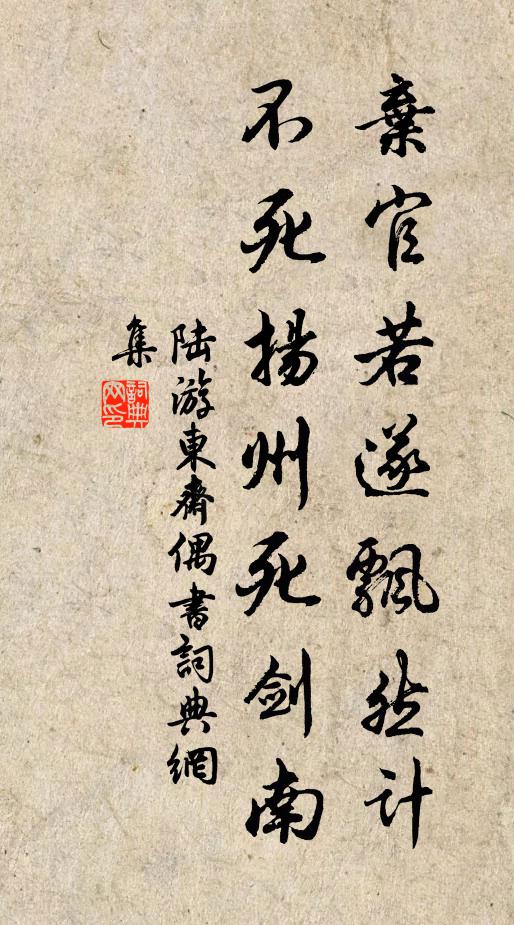 棄官若遂飄然計
不死揚州死劍南
陸游東齋偶書詞典網
集
詞典
网印